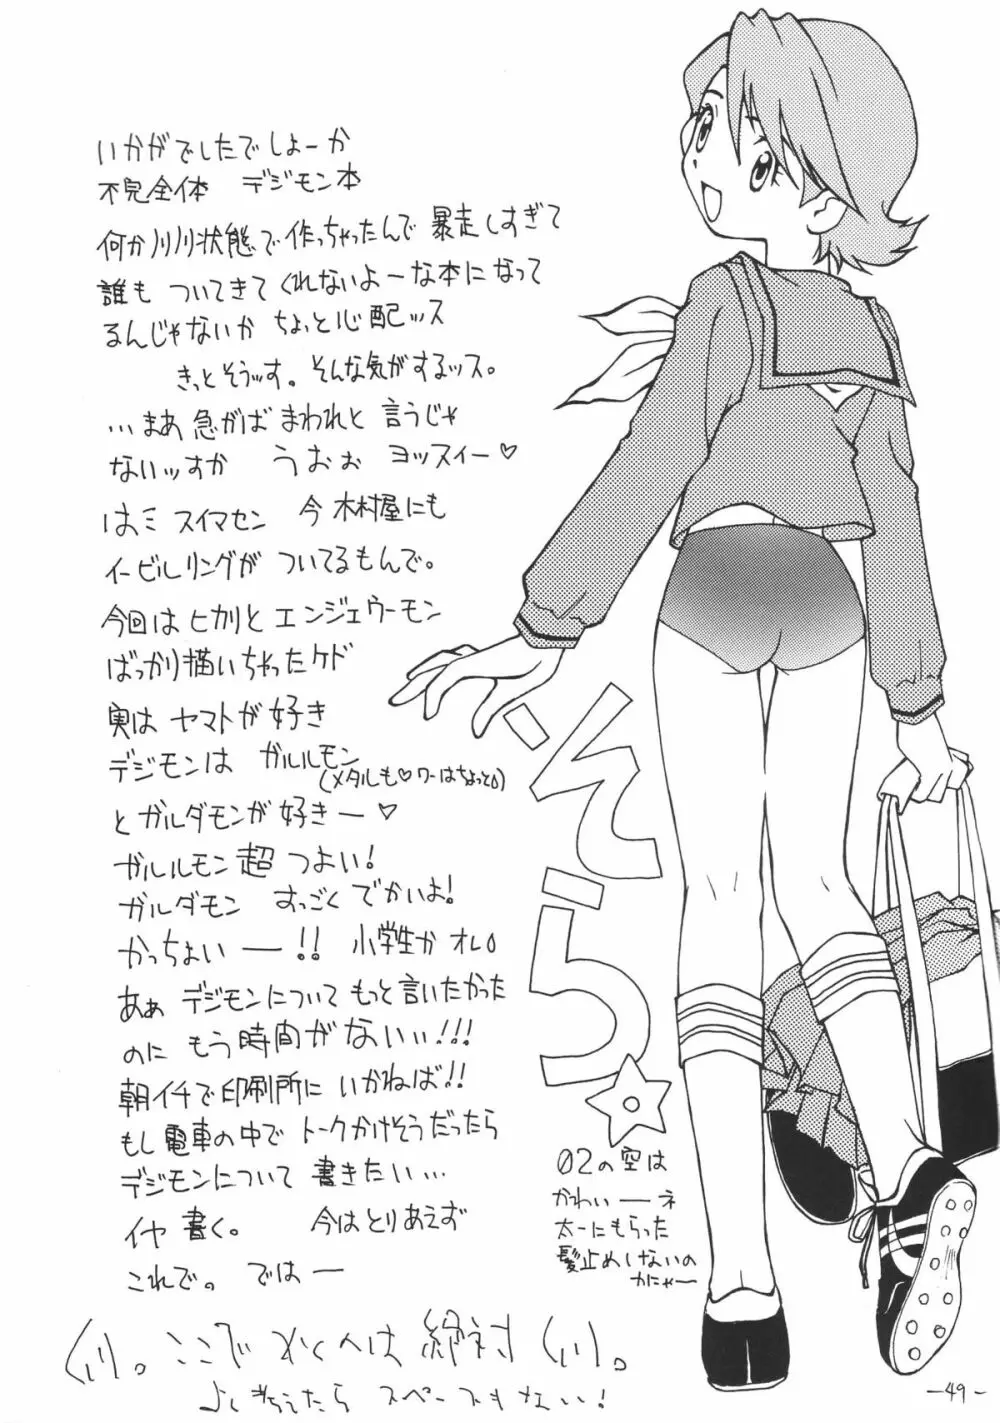 いかがでしたでしょーか
不完全体 デジモン本
何かノリノリ状態で作っちゃったんで 暴走しすぎて
誰も ついてきて くれないよーな本になって
るんじゃないか ちょっと心配ッス
きっとそうッす。そんな気がするッス。
…まあ 急がば まわれと 言うじゃ
ないッすか うおぉ ヨッスィー♡
はミ スイマセン 今 木村屋にも
イービルリングが ついてるもんで。
今回は ヒカリと エンジェウーモン
ばっかり描いちゃったケド
実は ヤマトが好き
デジモンは ガルルモン
(メタルも♡ワーはちょっと)
とガルダモンが 好きー♡
ガルルモン 超 つよい!
ガルダモン すっごく でかいよ!
かっちょいーー!! 小学生か オレ
あぁ デジモンについて もっと言いたかった
のに もう時間がないぃ!!!
朝イチで印刷所に いかねば!!
もし 電車の中で トークかけそうだったら
デジモンについて 書きたい…
イヤ 書く。 今はとりあえず
これで。 ではー
そら
02の空は
かわいーーネ
太一にもらった
髪止めしないの
かにゃー
絶対
スペースもない!
-49-